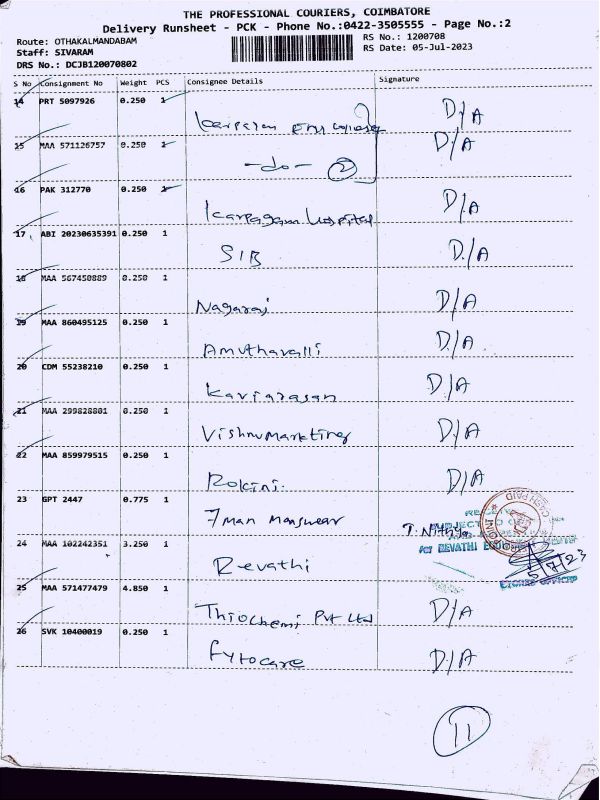 THE PROFESSIONAL COURIERS, COIMBATORE
Delivery Runsheet - PCK - Phone No.:0422-3505555 - Page No.:2
Route: OTHAKALMANDABAM
RS No.: 1200708
Staff: SIVARAM
RS Date: 05-Jul-2023
DRS No.: DCJB120070802
S No Consignment No Weight PCS Consignee Details Signature
14 PRT 5097926 0.250 1 D/A
15 MAA 571126757 0.250 1 -do- 2 D/A
16 PAK 312770 0.250 1 Karpagam Hospital D/A
17 ABI 20230635391 0.250 1 SIB D/A
18 MAA 567450889 0.250 1 Nagaraj D/A
19 MAA 860495125 0.250 1 Amuthavalli D/A
20 CDM 55238210 0.250 1 Kaviarasan D/A
21 MAA 299828801 0.250 1 Vishnu Markting D/A
22 MAA 859979515 0.250 1 Rokini. D/A
23 GPT 2447 0.775 1 7 Man Manswear T. Nithya
24 MAA 102242351 3.250 1 Revathi 5/7/23
25 MAA 571477479 4.850 1 Thiochemi Pvt Ltd D/A
26 SVK 10400019 0.250 1 Fytocare D/A
CASH PAID
REVATHI
11